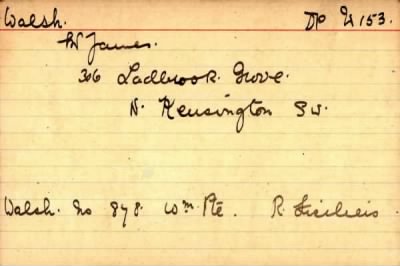 Walsh. DP 4/153.
W James.
36 Ladbrook Grove.
N. Kensington SW.
Walsh. No 878. Wm Pte. R. Fusiliers